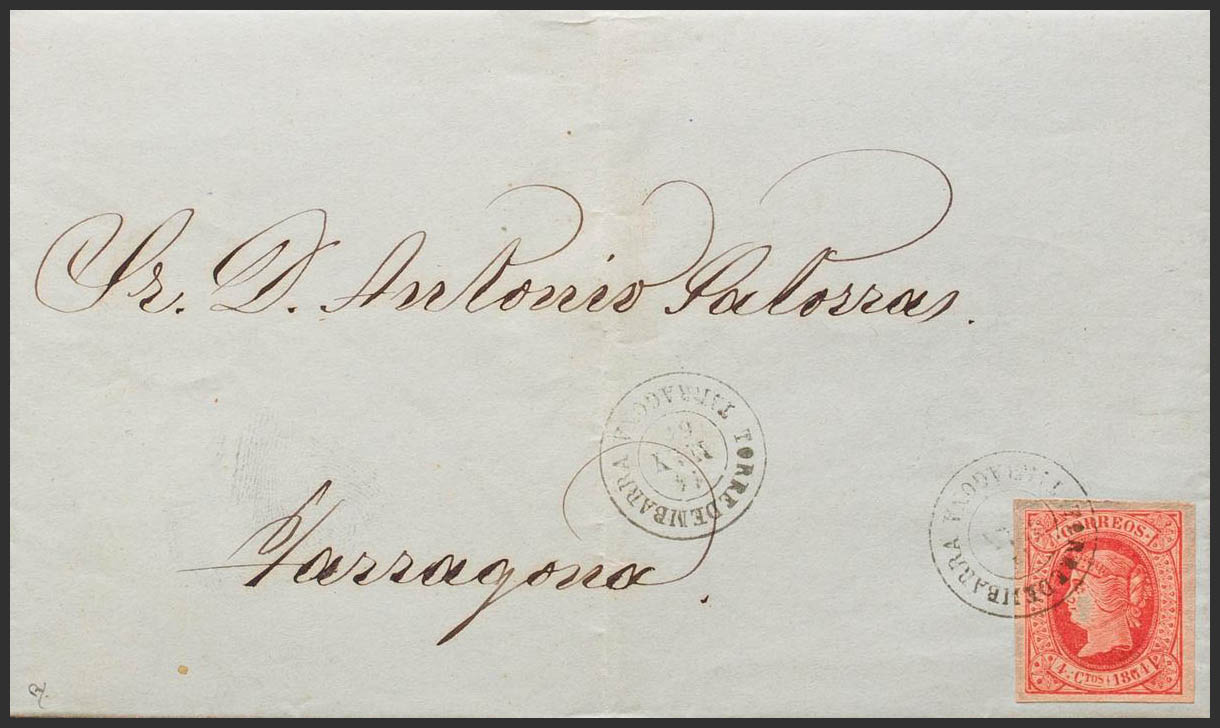 Sr. D. Antonio Satorras.
TORREDEMBARRA TARRAGONA
Tarragona.
TORREDEMBARRA TARRAGONA
CORREOS
4 CTOS 1864